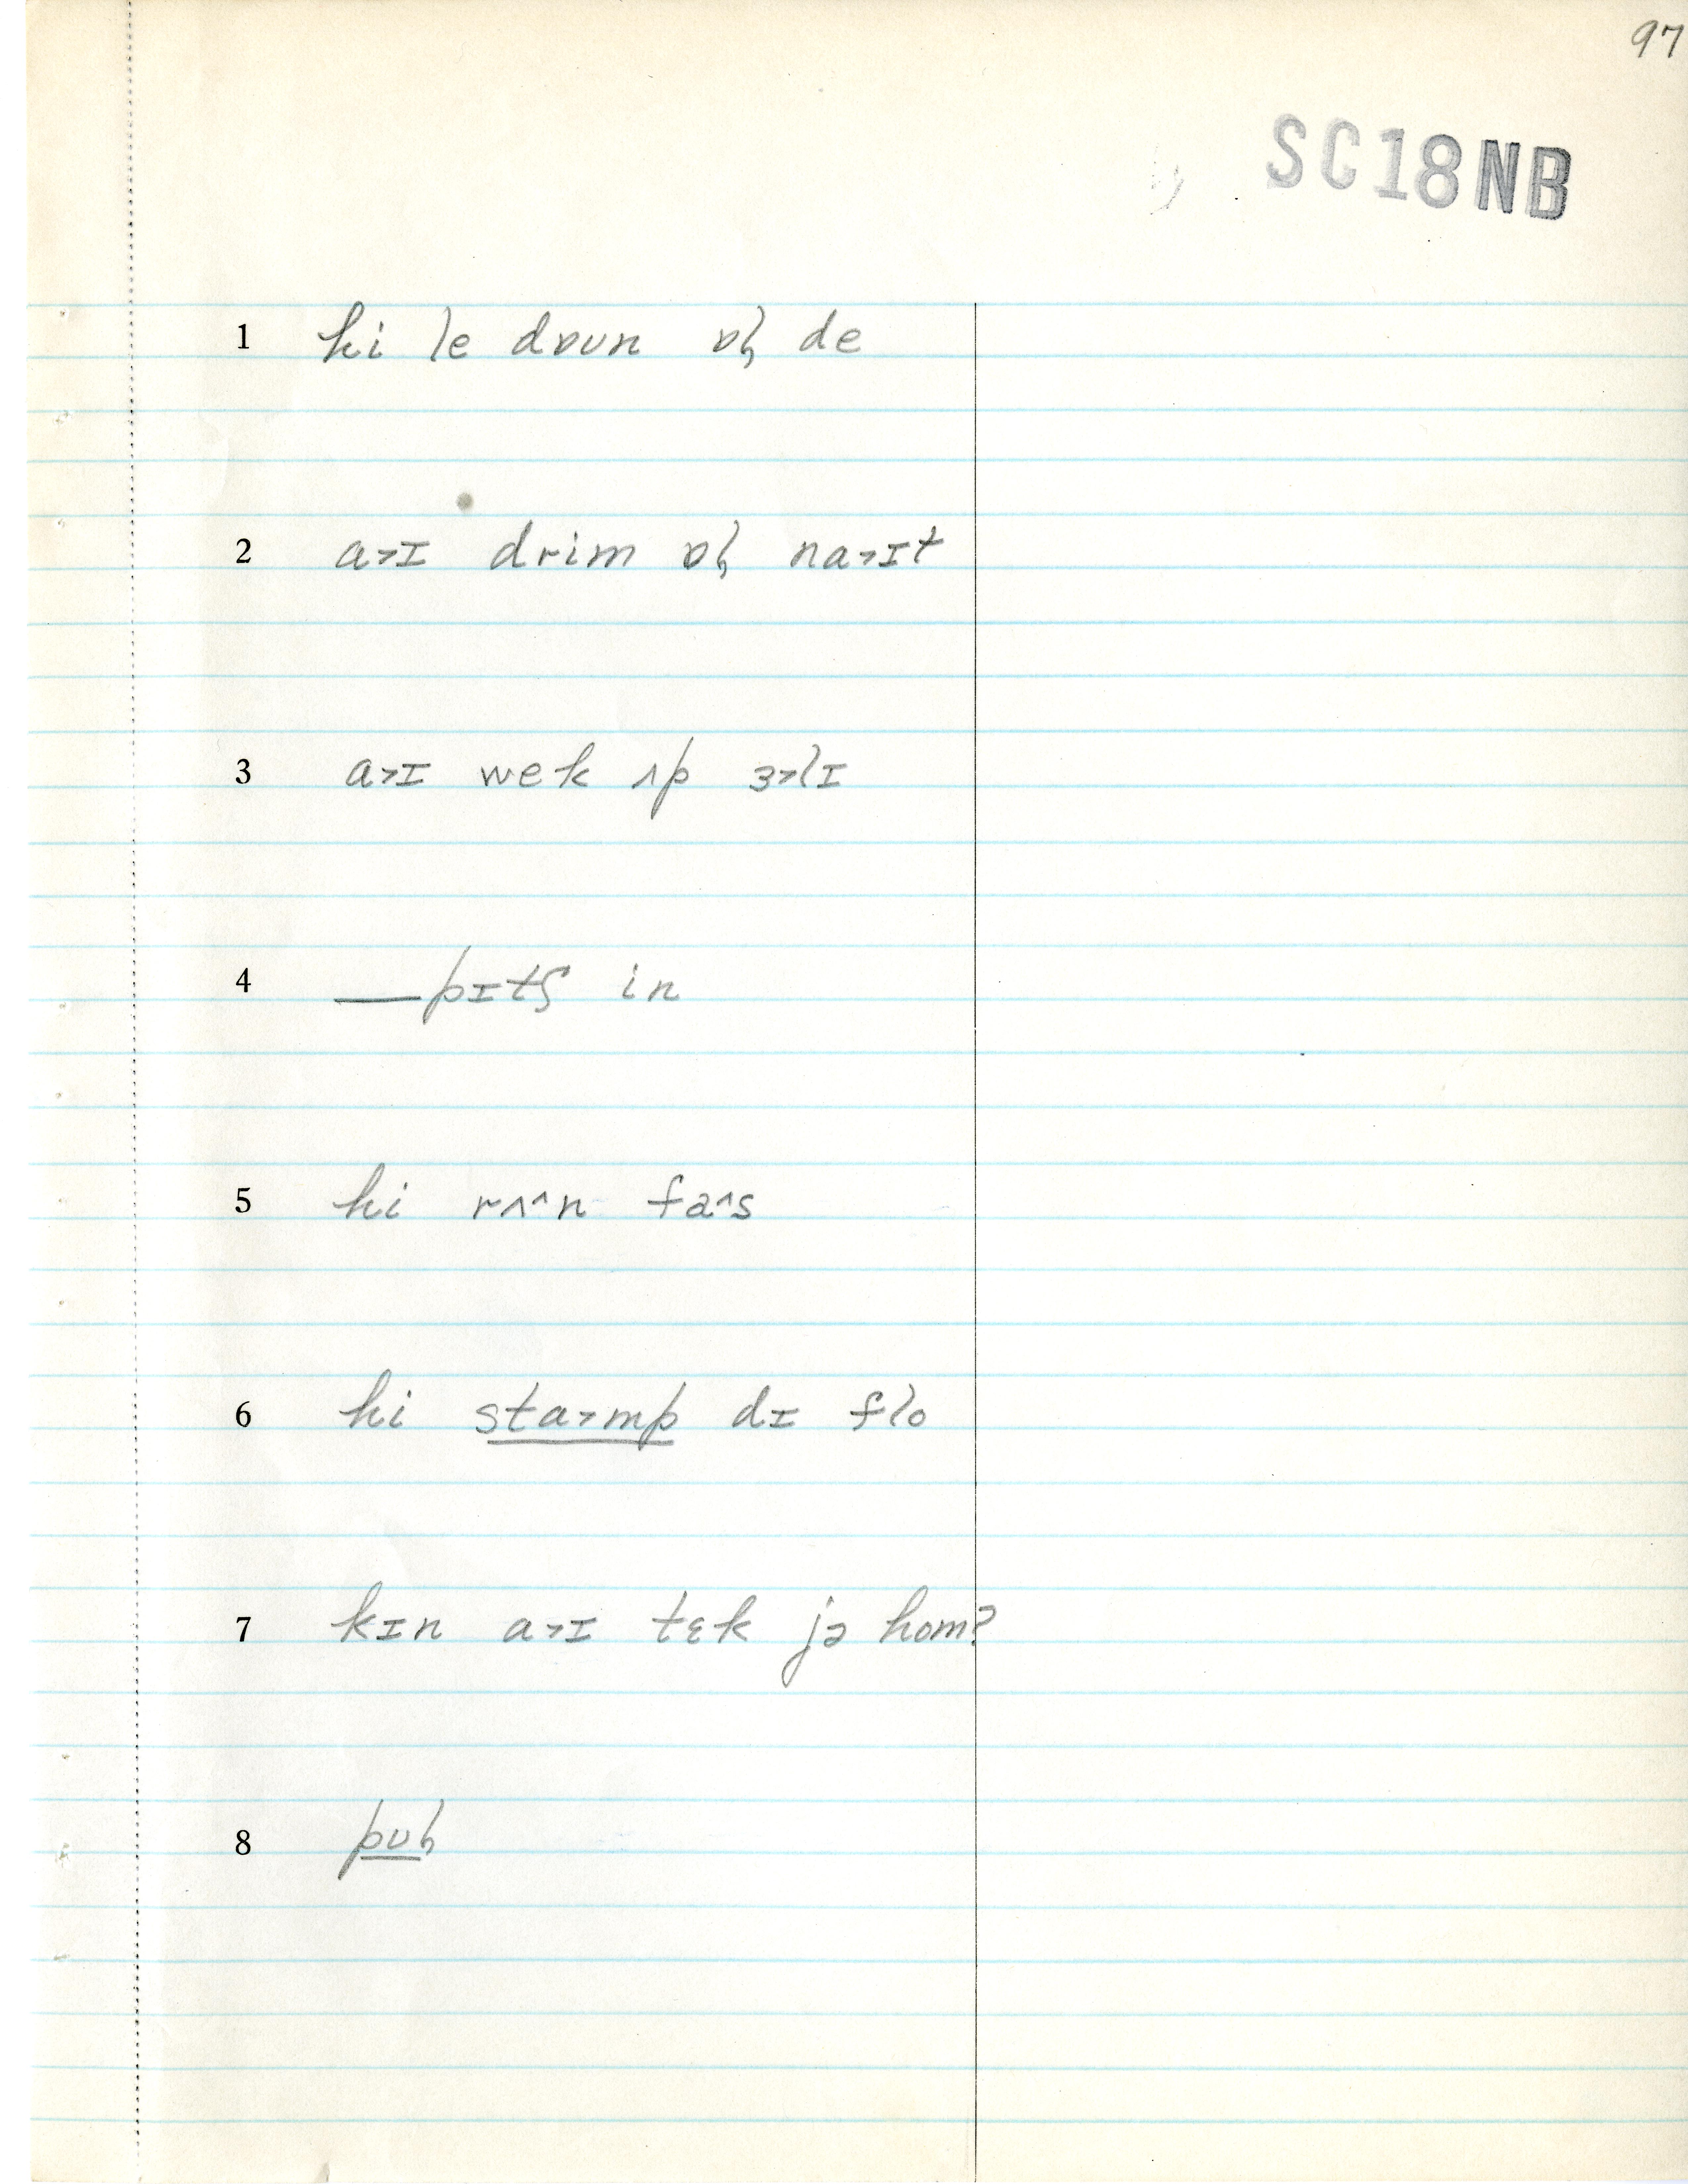 97
SC18NB
1 hi le dɒun ɒɫ de
2 a˃ɪ drim ɒɫ na˃ɪt
3 a˃ɪ wek ʌp ɜ˃lɪ
4 —pɪtʃ in
5 hi rʌ˄n fa˄s
6 hi sta˃mp dɪ flo
7 kɪn a˃ɪ tɛk jə hom?
8 puɫ